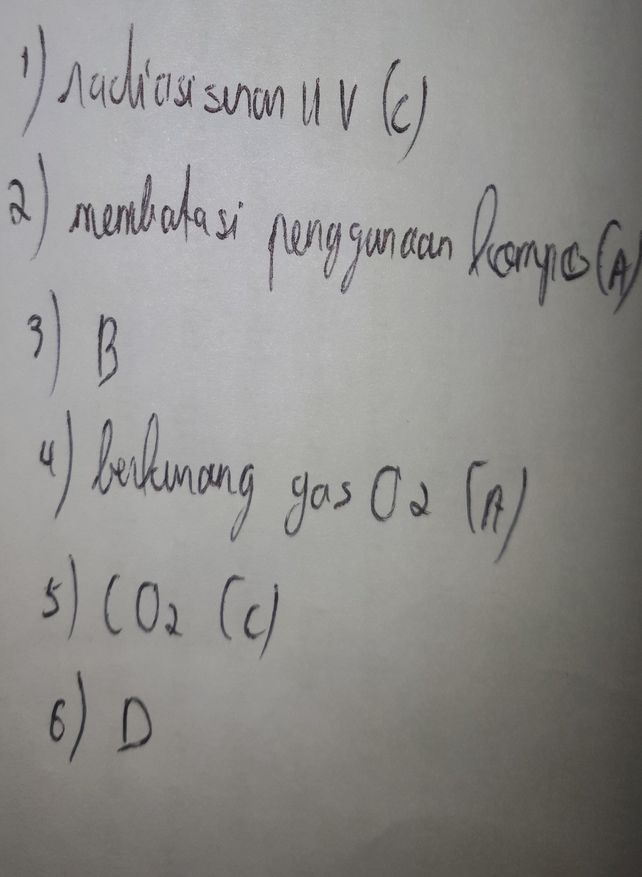 1) radiasi sinar UV (C)
2) membatasi penggunaan kompo (A)
3) B
4) berkurang gas O2 (A)
5) CO2 (C)
6) D